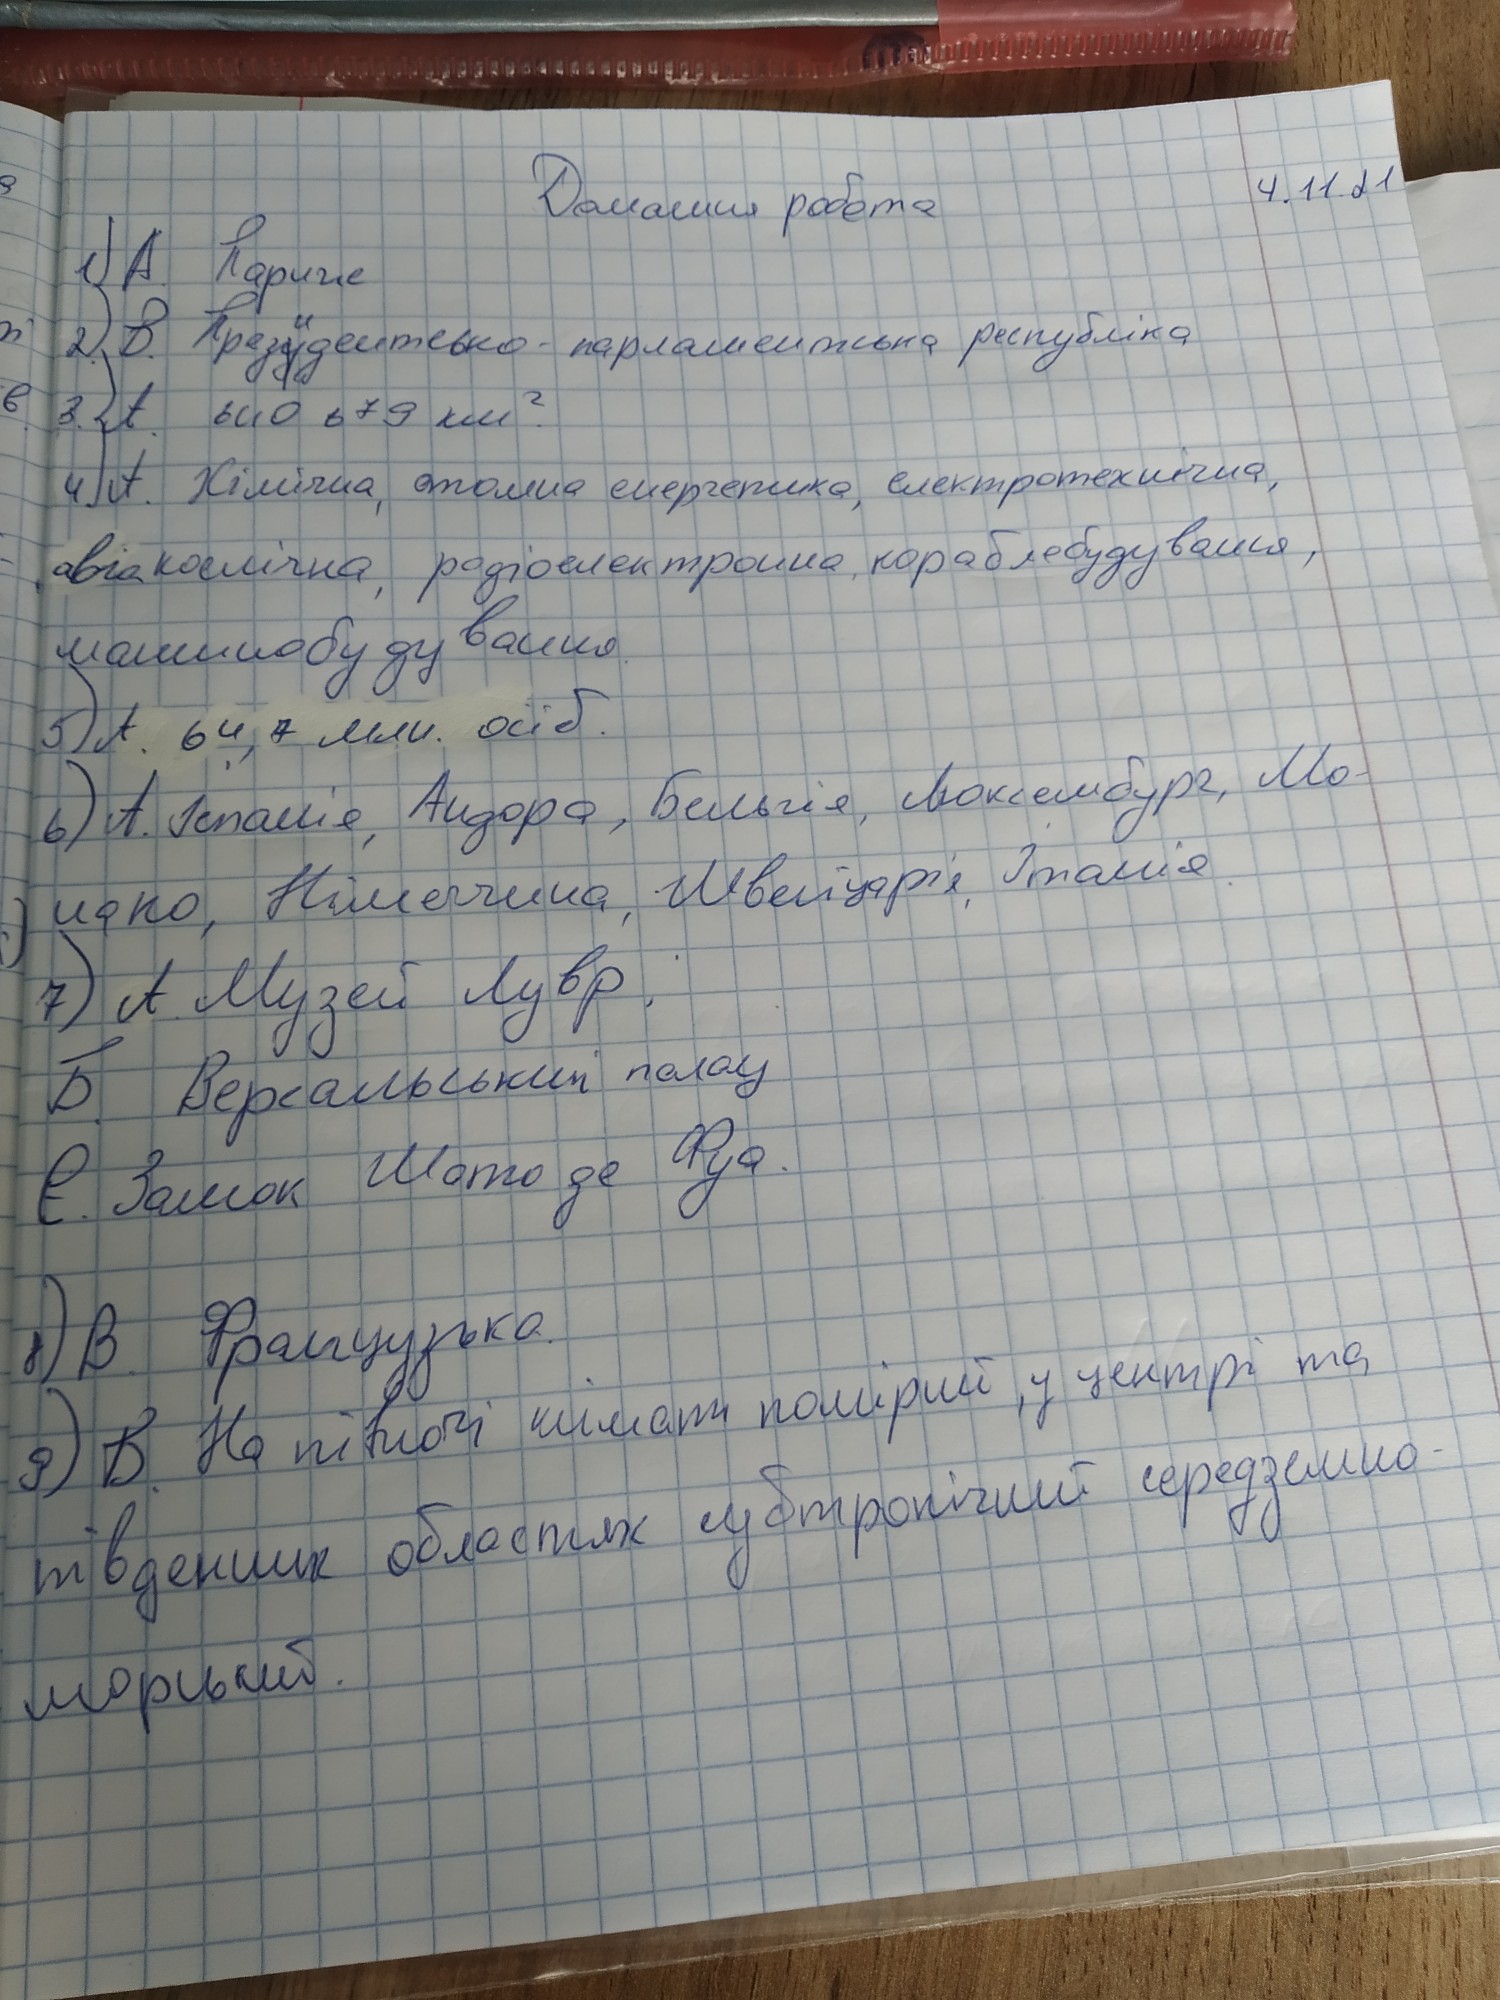 Домашня робота 4.11.21
1) А. Париж
2) В. Президентсько-парламентська республіка
3. А. 640 679 км²
4) А. Хімічна, атомна енергетика, електротехнічна,
авіакосмічна, радіоелектронна, кораблебудування,
машинобудування.
5) А. 64,7 млн. осіб.
6) А. Іспанія, Андора, Бельгія, Люксембург, Мо-
нако, Німеччина, Швейцарія, Італія.
7) А. Музей Лувр,
Б. Версальський палац
Є. Замок Шато де Фуа.
8) В. Французька.
9) В. На півночі клімат помірний, у центрі та
південних областях субтропічний середземно-
морський.